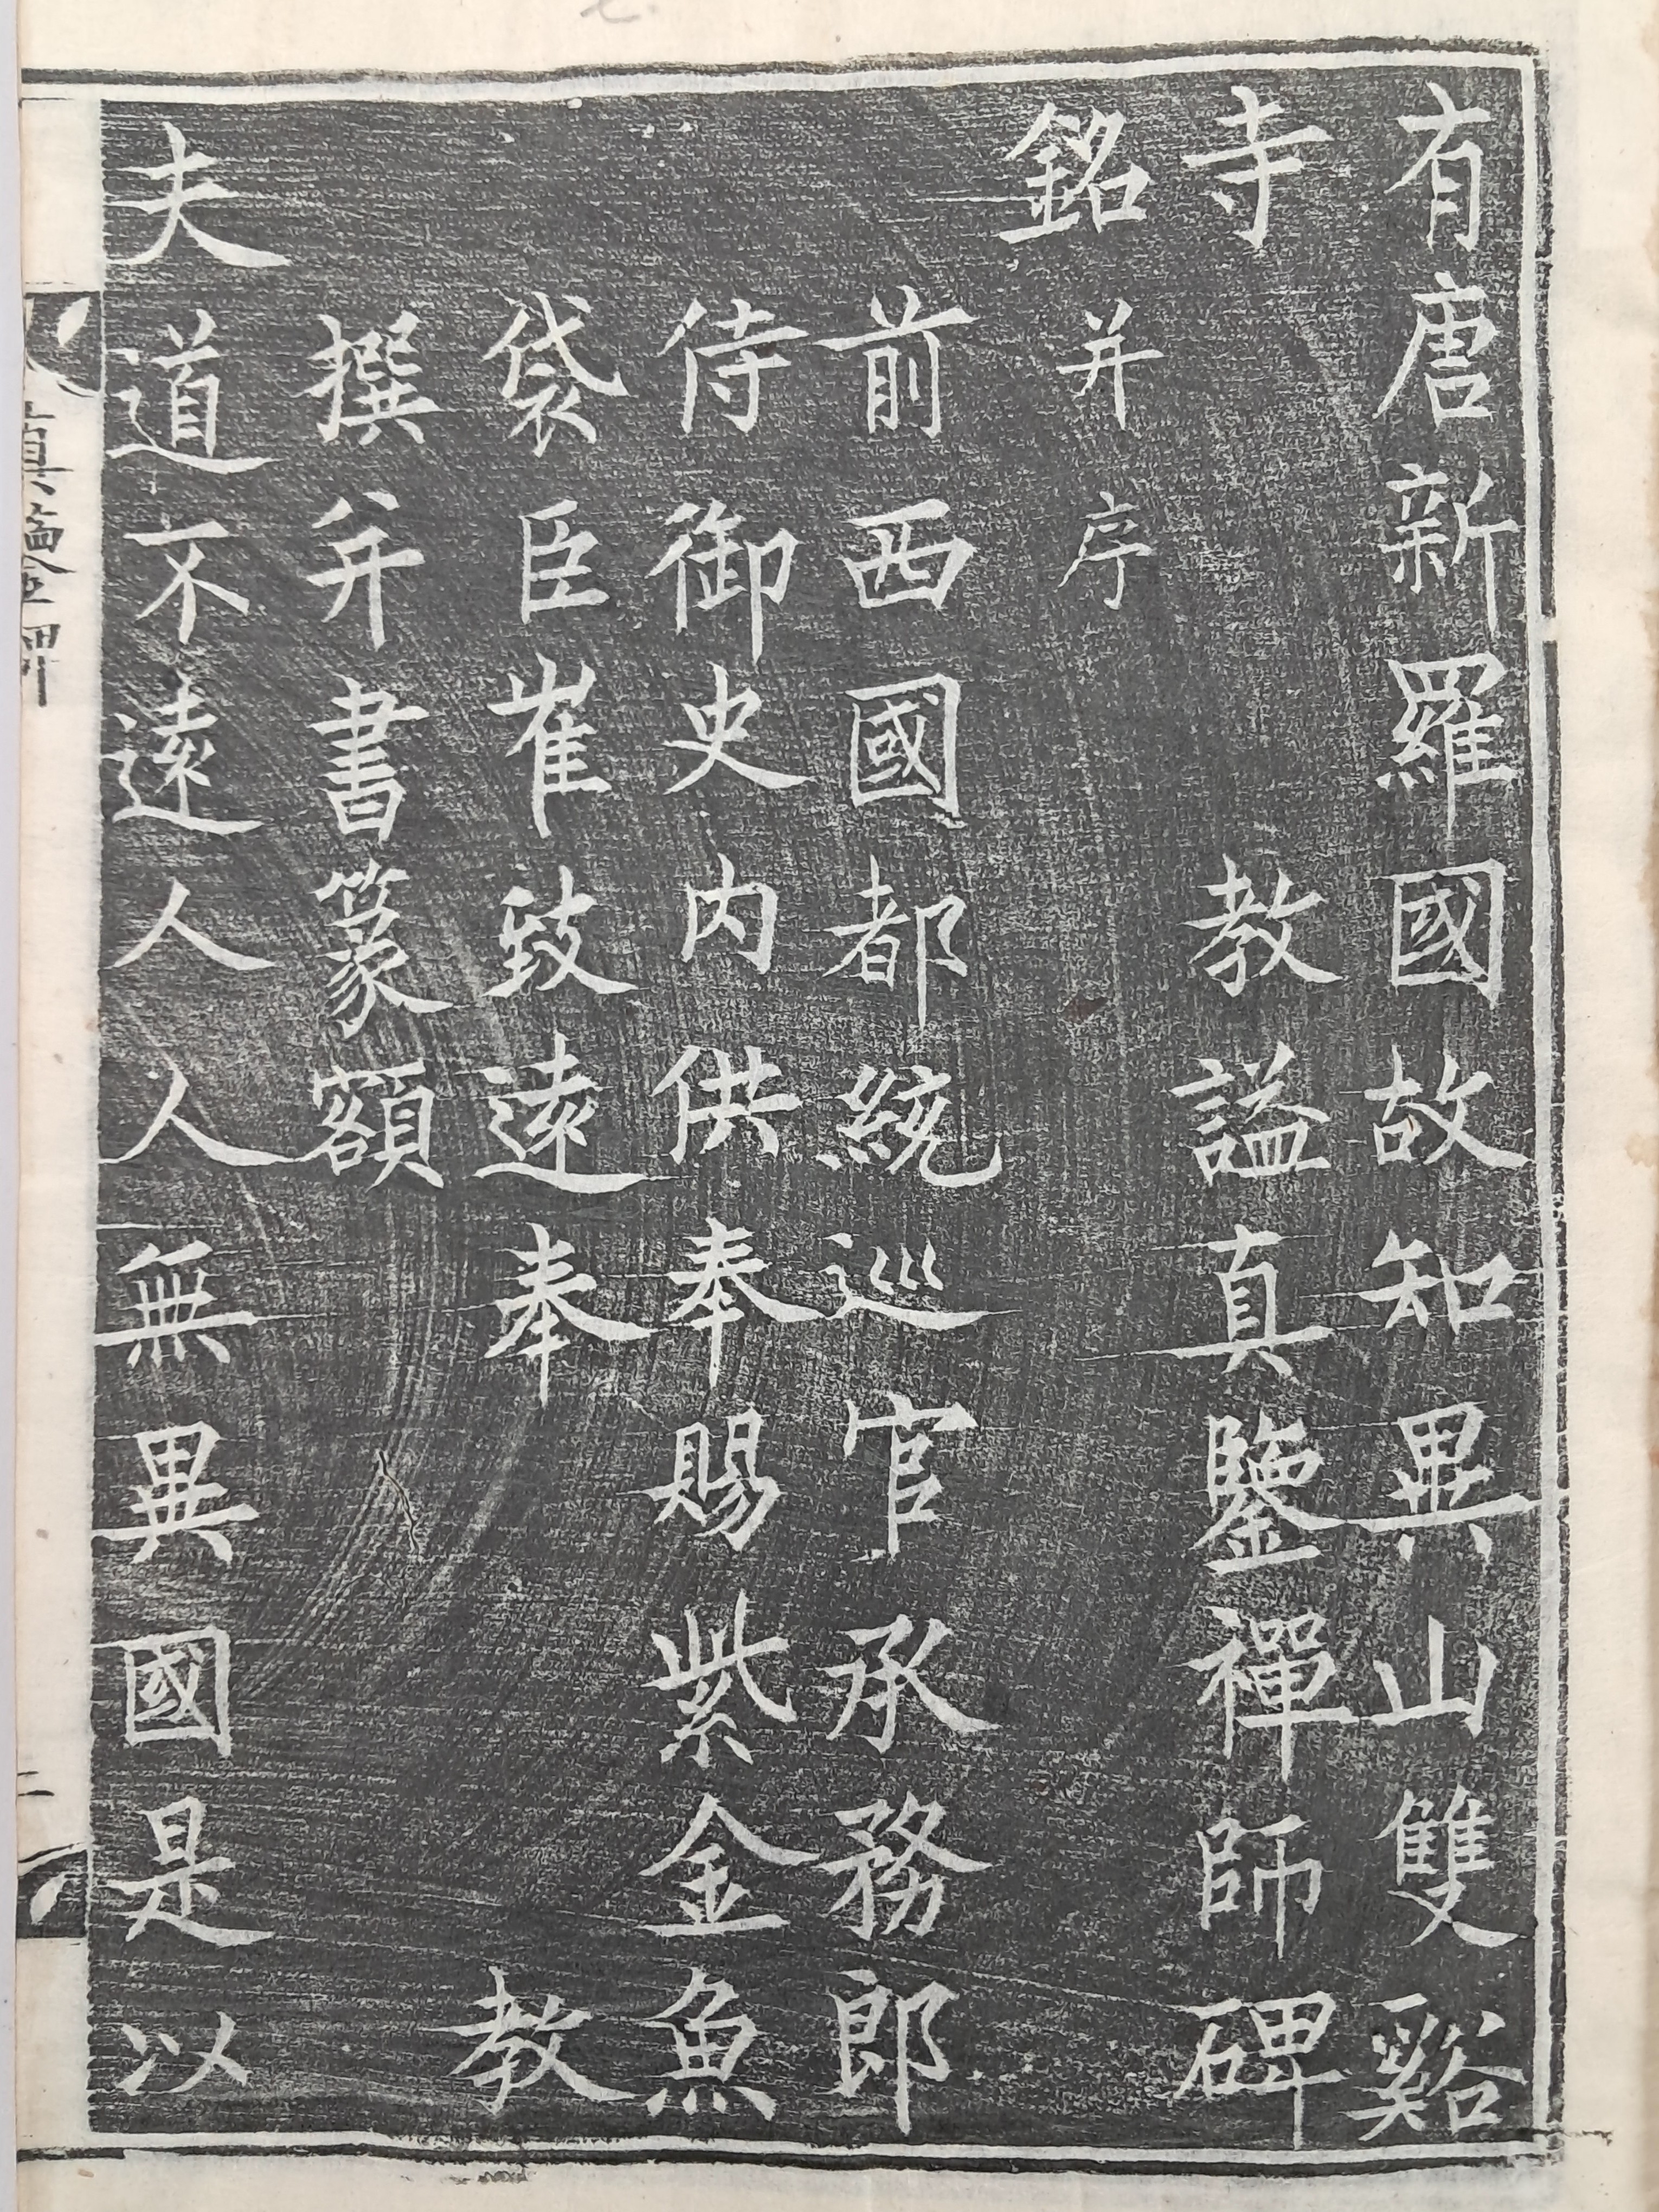 有唐新羅國故知異山雙谿
寺 教謚真鑒禪師碑
銘 并序
前西國都統巡官承務郎
侍御史內供奉賜紫金魚
袋臣崔致遠奉 教
撰并書篆額
夫道不遠人人無異國是以
真鑒碑
二